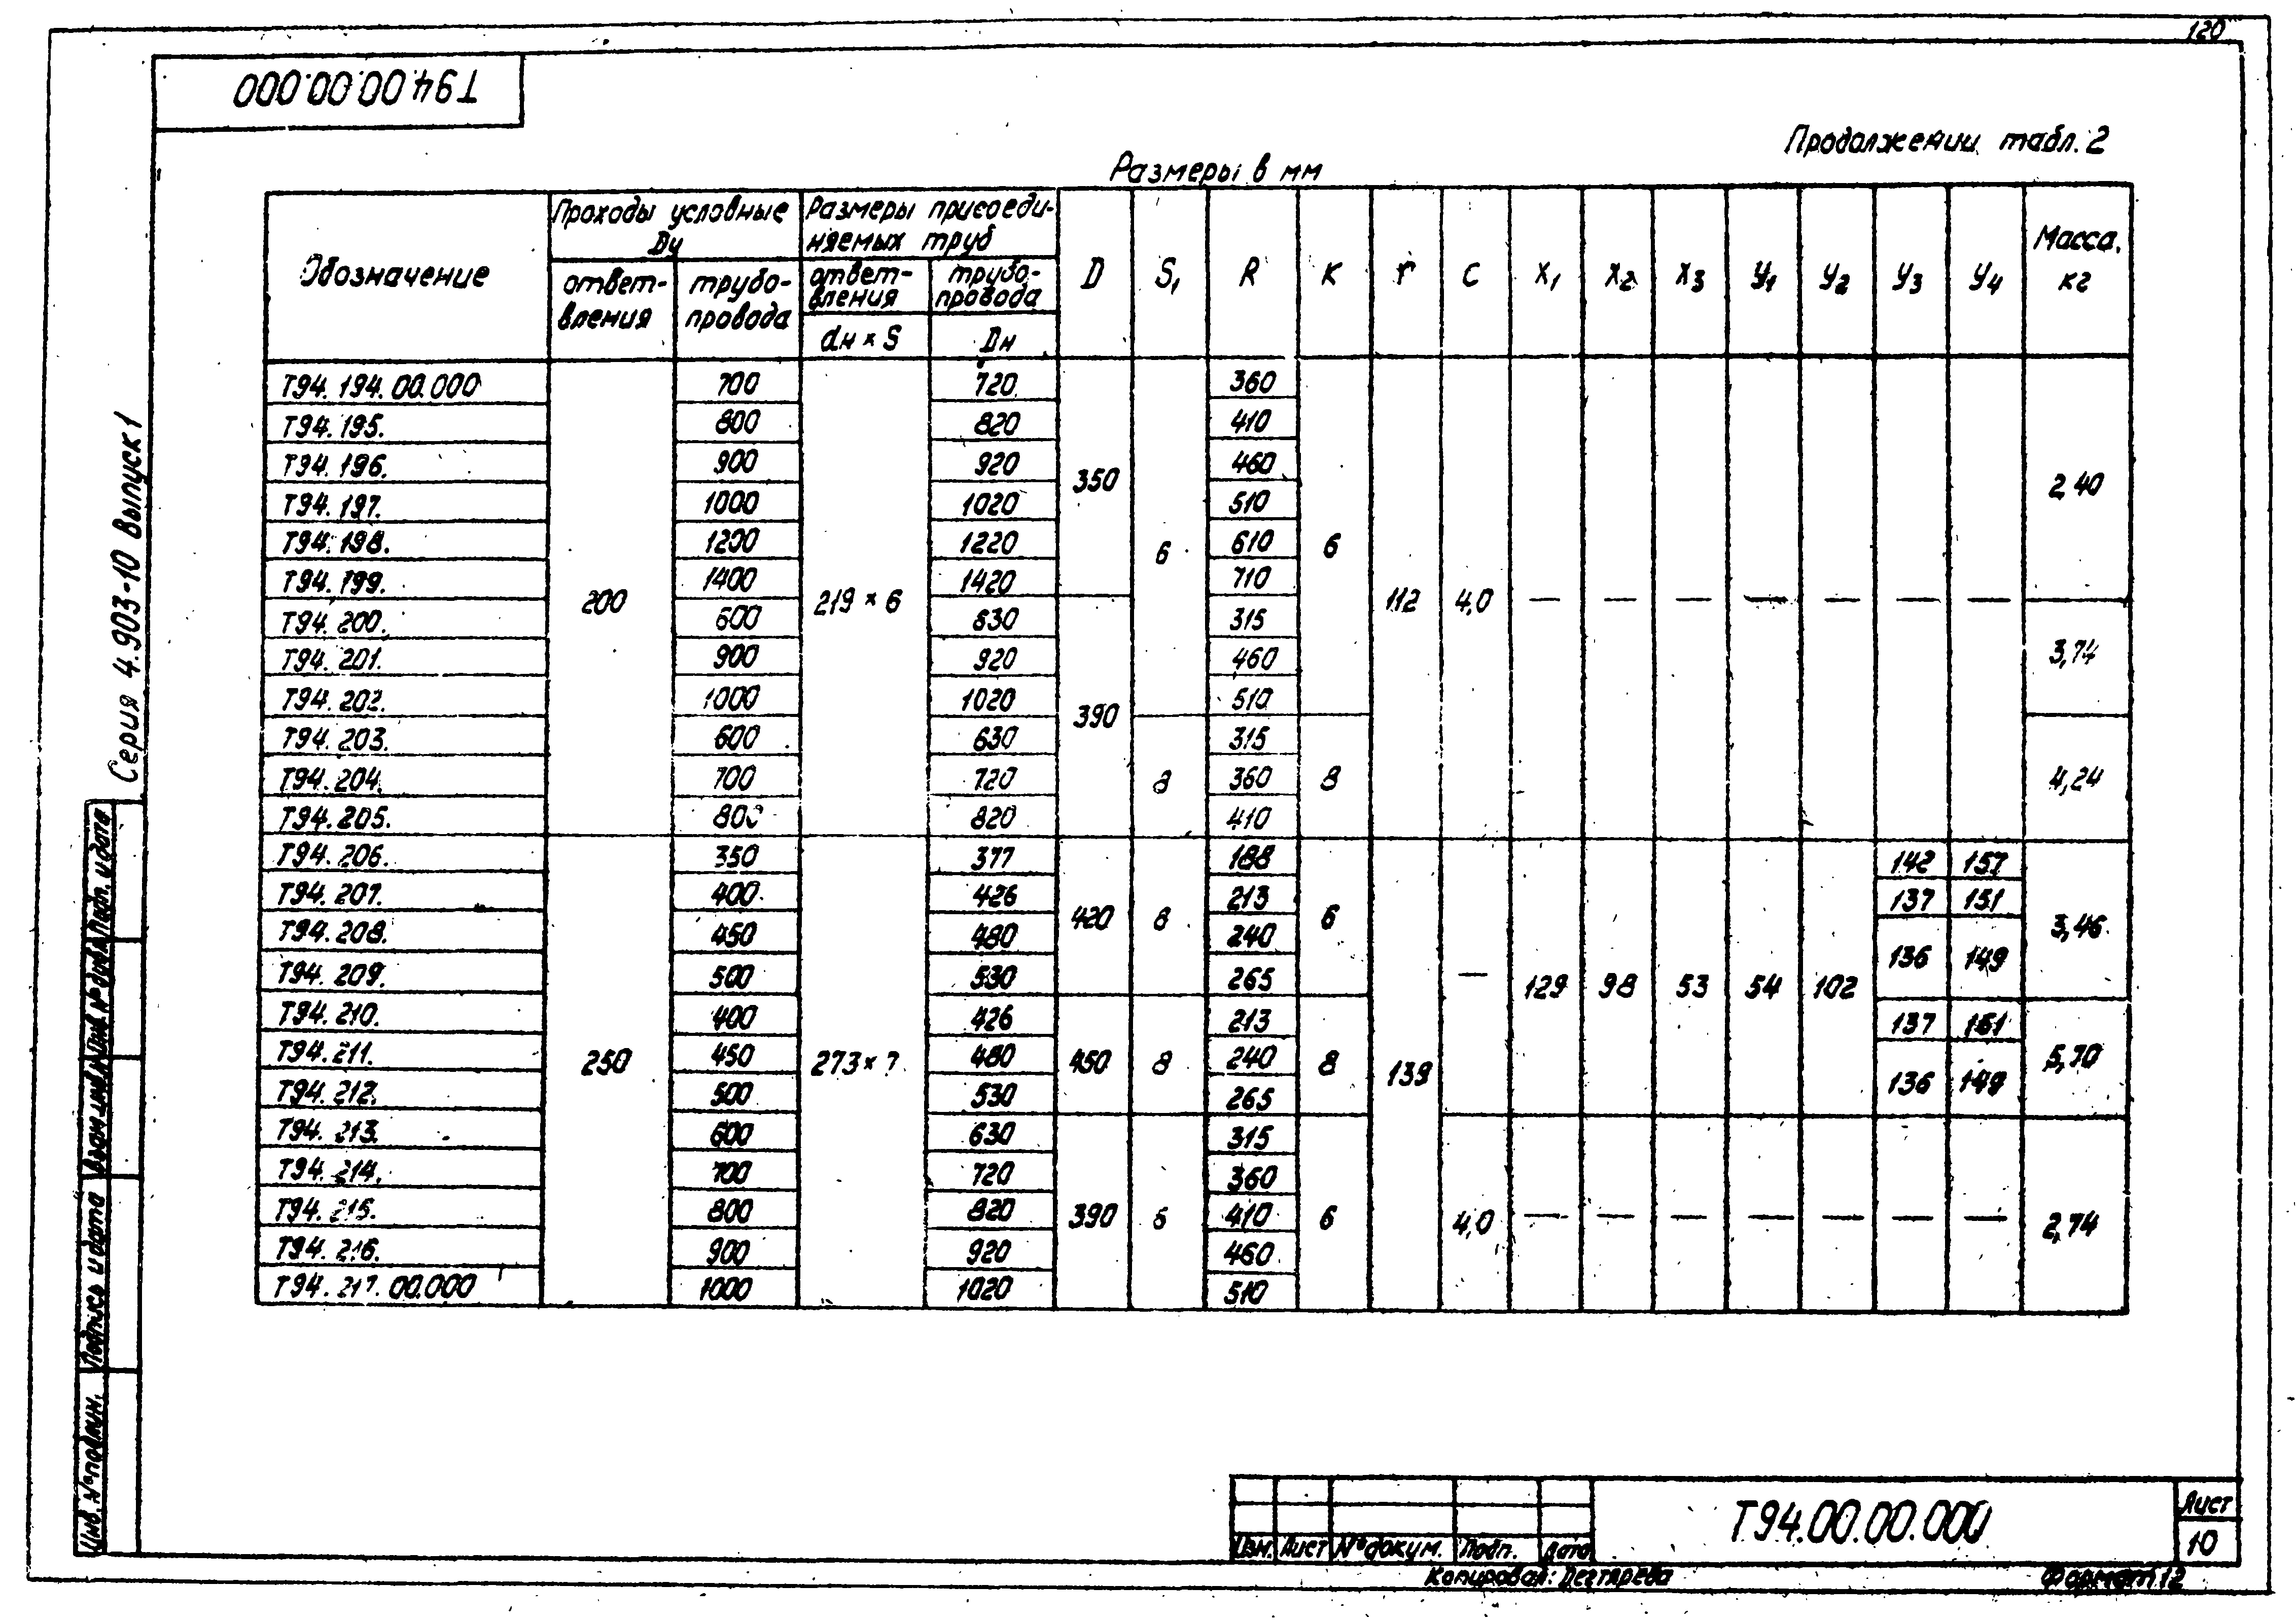 120
Т94.00.00.000
Продолжении табл. 2
Размеры в мм
Обозначение | Проходы условные Ду | Размеры присоеди-няемых труб | D | S₁ | R | K | r | C | X₁ | X₂ | X₃ | У₁ | У₂ | У₃ | У₄ | Масса, кг
ответ-вления | трубо-провода | ответ-вления | трубо-провода
dн × S | Dн
Т94. 194. 00.000 | 200 | 700 | 219 × 6 | 720 | 350 | 6 | 360 | 6 | 112 | 4,0 | — | — | — | — | — | — | — | 2,40
Т94. 195. | 800 | 820 | 410
Т94. 196. | 900 | 920 | 460
Т94. 197. | 1000 | 1020 | 510
Т94. 198. | 1200 | 1220 | 610
Т94. 199. | 1400 | 1420 | 710
Т94. 200. | 600 | 830 | 390 | 315 | 3,74
Т94. 201. | 900 | 920 | 460
Т94. 202. | 1000 | 1020 | 510
Т94. 203. | 600 | 630 | 8 | 315 | 8 | 4,24
Т94. 204. | 700 | 720 | 360
Т94. 205. | 800 | 820 | 410
Т94. 206. | 250 | 350 | 273 × 7 | 377 | 420 | 8 | 188 | 6 | 139 | — | 129 | 98 | 53 | 54 | 102 | 142 | 157 | 3,46
Т94. 207. | 400 | 426 | 213 | 137 | 151
Т94. 208. | 450 | 480 | 240 | 136 | 149
Т94. 209. | 500 | 530 | 265
Т94. 210. | 400 | 426 | 450 | 8 | 213 | 8 | 137 | 151 | 5,70
Т94. 211. | 450 | 480 | 240 | 136 | 149
Т94. 212. | 500 | 530 | 265
Т94. 213. | 600 | 630 | 390 | 6 | 315 | 6 | 4,0 | — | — | — | — | — | — | — | 2,74
Т94. 214. | 700 | 720 | 360
Т94. 215. | 800 | 820 | 410
Т94. 216. | 900 | 920 | 460
Т94. 217. 00.000 | 1000 | 1020 | 510
Серия 4.903-10 Выпуск 1
Инв. № подлин.
Подпись и дата
Взам. инв. №
Инв. № дубл.
Подп. и дата
Изм. | Лист | № докум. | Подп. | Дата
Т94.00.00.000
Лист
10
Копировал: Дегтярева
Формат 12